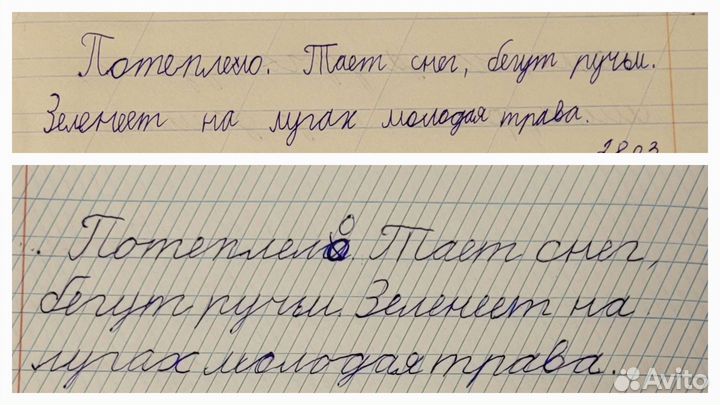 Потеплело. Тает снег, бегут ручьи.
Зеленеет на лугах молодая трава.
Потеплело. Тает снег,
бегут ручьи. Зеленеет на
лугах молодая трава.
Avito